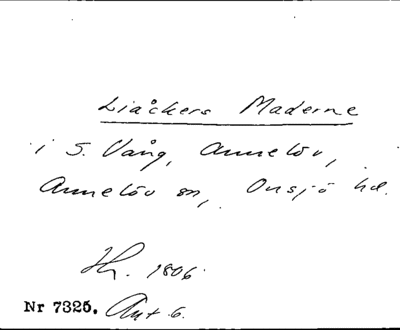 Liaåkers Maderne
i S. Vång, Annelöv,
Annelöv sn, Onsjö hd.
Sk. 1806.
Nr 7325. Ant 6.